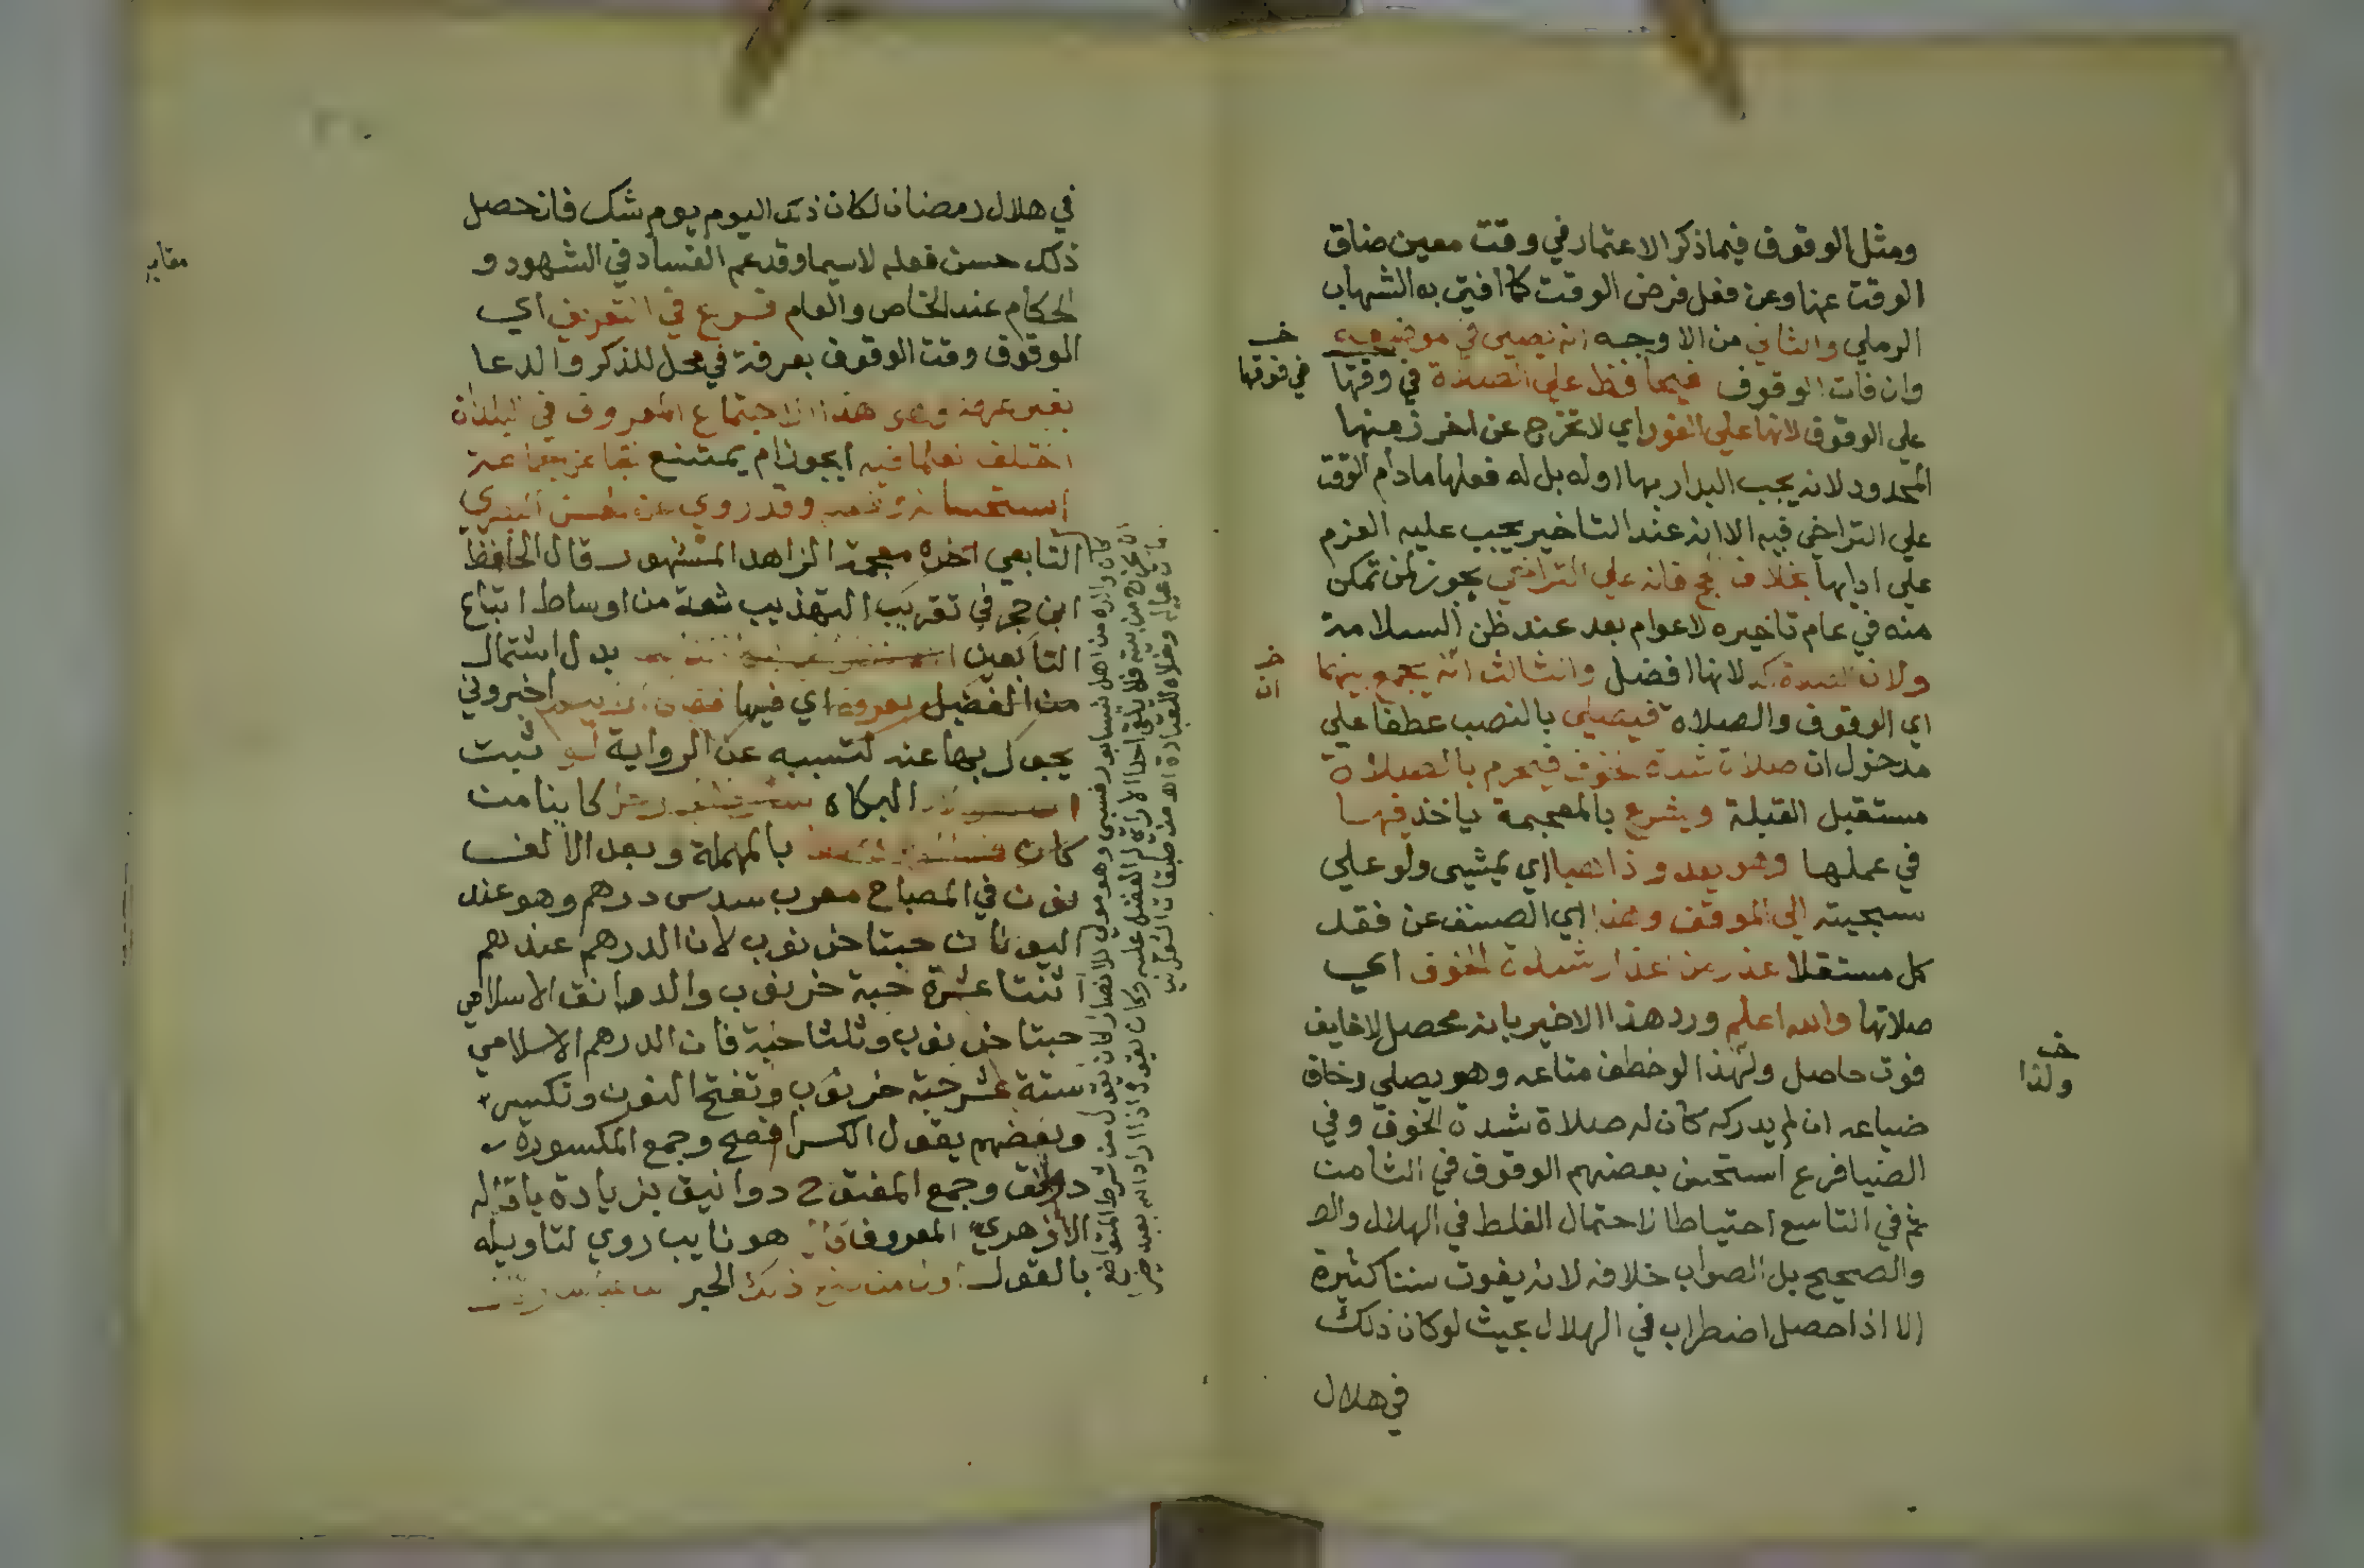 ومثل الوقوف فيما ذكر الاعتمار في وقت معين ضاق
الوقت عنها وعن فعل فرض الوقت كما افتي به الشهاب
الرملي والثاني من الاوجه انه يصلي في موضعه
وان فات الوقوف فيحافظ علي الصلاة في وقتها
علي الوقوف لانها علي الفور اي لا تخرج عن اخر زمنها
المحدود لانه يجب البدار بها اوله بل له فعلها مادام الوقت
علي التراخي فيه الا انه عند التاخير يجب عليه العزم
علي ادايها بخلاف الحج فانه علي التراخي يجوز لمن تمكن
منه في عام تاخيره لاعوام بعد عند ظن السلامة
ولان الصلاة اكد لانها افضل والثالث انه يجمع بينهما
اي الوقوف والصلاة فيصلي بالنصب عطفا علي
مدخول ان صلاة شدة خوف فيحرم بالصلاة
مستقبل القبلة ويشرع بالمعجمة ياخذ فيها
في عملها وهو يعدو ذاهبا اي يمشي ولو علي
سجيته الي الموقف وهذا اي الصنف عن فقد
كل مستقلا عذر من اعذار شدة الخوف اي
صلاتها والله اعلم ورد هذا الاخير بانه محصل لاخايف
فوت حاصل ولهذا لو خطف متاعه وهو يصلي وخاف
ضياعه ان لم يدركه كان له صلاة شدة الخوف وفي
الضيا فرع استحسن بعضهم الوقوف في الثامن
ثم في التاسع احتياطا لاحتمال الغلط في الهلال والص
والصحيح بل الصواب خلافه لانه يفوت سننا كثيرة
الا اذا حصل اضطراب في الهلال بحيث لو كان ذلك
في هلال
خـ
في فوقها
خـ
ان
خـ
ولذا
في هلال رمضان لكان ذلك اليوم يوم شك فان حصل
ذلك حسن فعله لاسيما وقد عم الفساد في الشهود و
الحكام عند الخاص والعام فرع في التعريف اي
الوقوف وقت الوقوف بعرفة في محل للذكر والدعا
بغير عرفة وهو هذا الاجتماع المعروف في البلدان
اختلف العلما فيه ايجوز ام يمتنع فجا عن جماعة
استحسانه وفعله وقد روي عن الحسن البصري
التابعي اخره معجمة الزاهد المشهور قال الحافظ
ابن حجر في تقريب التهذيب ثقة من اوساط اتباع
التابعين بدل اشتمال
من الفضيل بعرفة اي فيها فقال اخبروني
يجوك بها عنه لتسببه عن الرواية لو ثبت
البكاه كاينا من
كان بالمهملة وبعد الالف
نون في المصباح معرب سدس درهم وهو عند
اليونان حبتا خرنوب لان الدرهم عندهم
ثنتا عشرة حبة خرنوب والدانق الاسلامي
حبتا خرنوب وثلثا حبة فان الدرهم الاسلامي
ستة عشر حبة خرنوب وتفتح النون وتكسر
وبعضهم يقول الكسر افصح وجمع المكسورة
دوانق وجمع المفتوح دوانيق بزيادة يا قاله
الازهري المعروف هو نايب روي لتاويله
بالقول ذلك الحبر
كان واره من اهل نيسابور فسبي وهو مولي للانصار كان يقول من شرط التواضع
ان يخرج من بيته فلا يلقي احدا الا راي له الفضل عليه وكان يقول اذا اراد الله بعبد خيرا